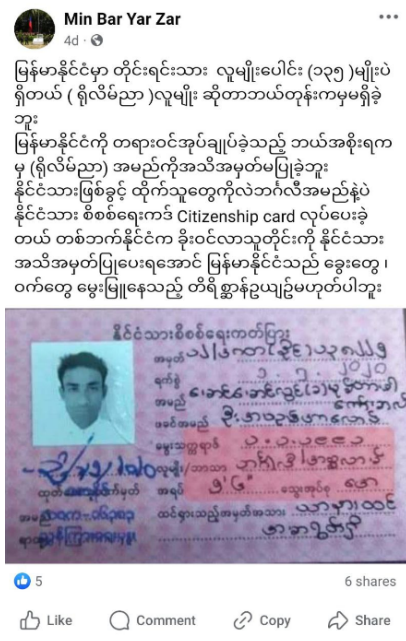 Min Bar Yar Zar
4d
မြန်မာနိုင်ငံမှာ တိုင်းရင်းသား လူမျိုးပေါင်း (၁၃၅ )မျိုးပဲ
ရှိတယ် ( ရိုလိမ်ညာ )လူမျိုး ဆိုတာဘယ်တုန်းကမှမရှိခဲ့
ဘူး
မြန်မာနိုင်ငံကို တရားဝင်အုပ်ချုပ်ခဲ့သည့် ဘယ်အစိုးရက
မှ (ရိုလိမ်ညာ) အမည်ကိုအသိအမှတ်မပြုခဲ့ဘူး
နိုင်ငံသားဖြစ်ခွင့် ထိုက်သူတွေကိုလဲဘင်္ဂလီအမည်နဲ့ပဲ
နိုင်ငံသား စီစစ်ရေးကဒ် Citizenship card လုပ်ပေးခဲ့
တယ် တစ်ဘက်နိုင်ငံက ခိုးဝင်လာသူတိုင်းကို နိုင်ငံသား
အသိအမှတ်ပြုပေးရအောင် မြန်မာနိုင်ငံသည် ခွေးတွေ ၊
ဝက်တွေ မွေးမြူနေသည့် တိရိစ္ဆာန်ဥယျဥ်မဟုတ်ပါဘူး
နိုင်ငံသားစိစစ်ရေးကတ်ပြား
အမှတ်
ရက်စွဲ
အမည်
ဖခင်အမည်
မွေးသက္ကရာဇ်
လူမျိုး/ဘာသာ
အရပ် ၅'၆" သွေးအုပ်စု
ထင်ရှားသည့်အမှတ်အသား
5
6 shares
Like
Comment
Copy
Share